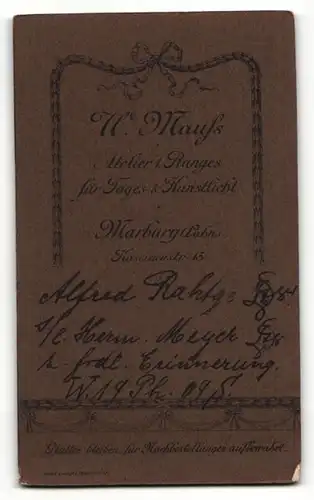 W. Mauß
Atelier I. Ranges
für Tages & Kunstlicht
Marburg (Lahn)
Alfred Rahtgs
s/l. Herm. Meyer
z. frdl. Erinnerung.
Platten bleiben für Nachbestellungen aufbewahrt.